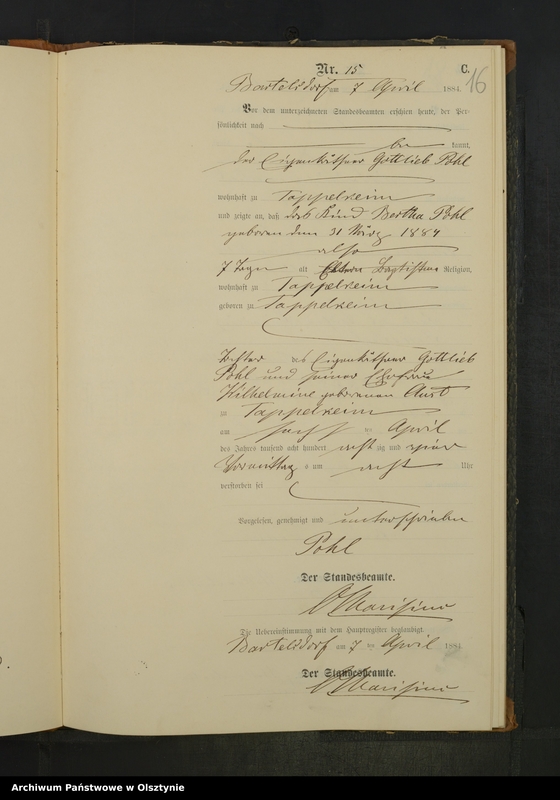 Nr. 15
C.
16
Bartelsdorf am 7 April 1884.
Vor dem unterzeichneten Standesbeamten erschien heute, der Per-
sönlichkeit nach
be kannt,
der Eigenkäthner Gottlieb Pohl
wohnhaft zu Tappelkeim
und zeigte an, daß das Kind Bertha Pohl
geboren den 31 März 1884
also
7 Tage alt Religion,
wohnhaft zu Tappelkeim
geboren zu Tappelkeim
Tochter des Eigenkäthner Gottlieb
Pohl und seiner Ehefrau
Wilhelmine geborenen
zu Tappelkeim
am April
des Jahres tausend acht hundert acht zig und vier
Vormittag s um acht Uhr
verstorben sei
Vorgelesen, genehmigt und unterschrieben
Pohl
Der Standesbeamte.
Die Uebereinstimmung mit dem Hauptregister beglaubigt.
Bartelsdorf am 7 ten April 1884
Der Standesbeamte.
Archiwum Państwowe w Olsztynie